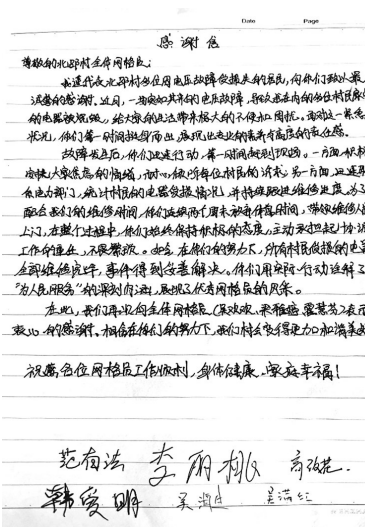 Date Page
感谢信
尊敬的北邵村全体网格员:
我谨代表北邵村各位因电压故障受损失的居民,向你们致以最
诚挚的感谢。近日,一场突如其来的电压故障,导致
的电器被烧毁,给大家的生活带来极大的不便和困扰。面对这一紧急
状况,你们第一时间挺身而出,展现出专业的素养与高度的责任感。
故障发生后,你们迅速行动,第一时间赶到现场。一方面,积极
安抚大家焦急的情绪,耐心倾听每位村民的诉求;另一方面,迅速联
系电力部门,统计村民的电器受损情况,并持续跟进维修进度。为了
配合我们的维修时间,你们连续两个周末放弃休息时间,带领维修人员
上门,在整个过程中,你们始终保持积极的态度,主动承担起协调
工作的重任,不畏繁琐。如今,在你们的努力下,所有村民受损的电器
全部维修完毕,事件得到妥善解决。你们用实际行动诠释了
"为人民服务"的深刻内涵,展现了优秀网格员的风采。
在此,我们再次向全体网格员 表示
衷心的感谢。相信在你们的努力下,我们村会变得更加和谐美好
祝愿各位网格员工作顺利,身体健康,家庭幸福!
范有法 李丽桃
韩爱明